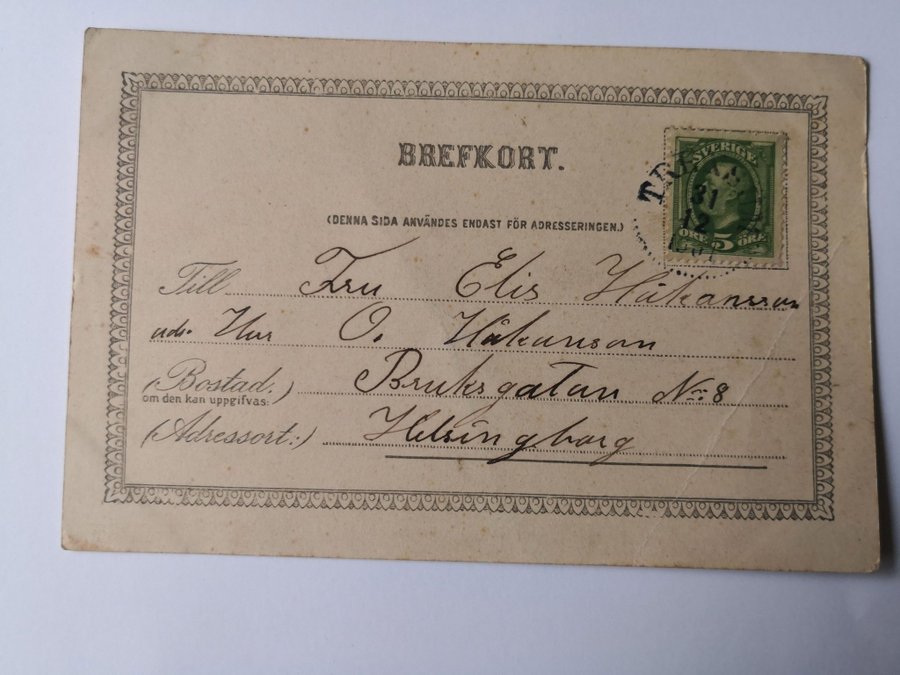 BREFKORT.
SVERIGE
31
12
ÖRE 5 ÖRE
(DENNA SIDA ANVÄNDES ENDAST FÖR ADRESSERINGEN.)
Till Fru Elis Håkansson
adr. Herr O. Håkanson
(Bostad,) Bruksgatan No: 8
om den kan uppgifvas:
(Adressort:) Helsingborg